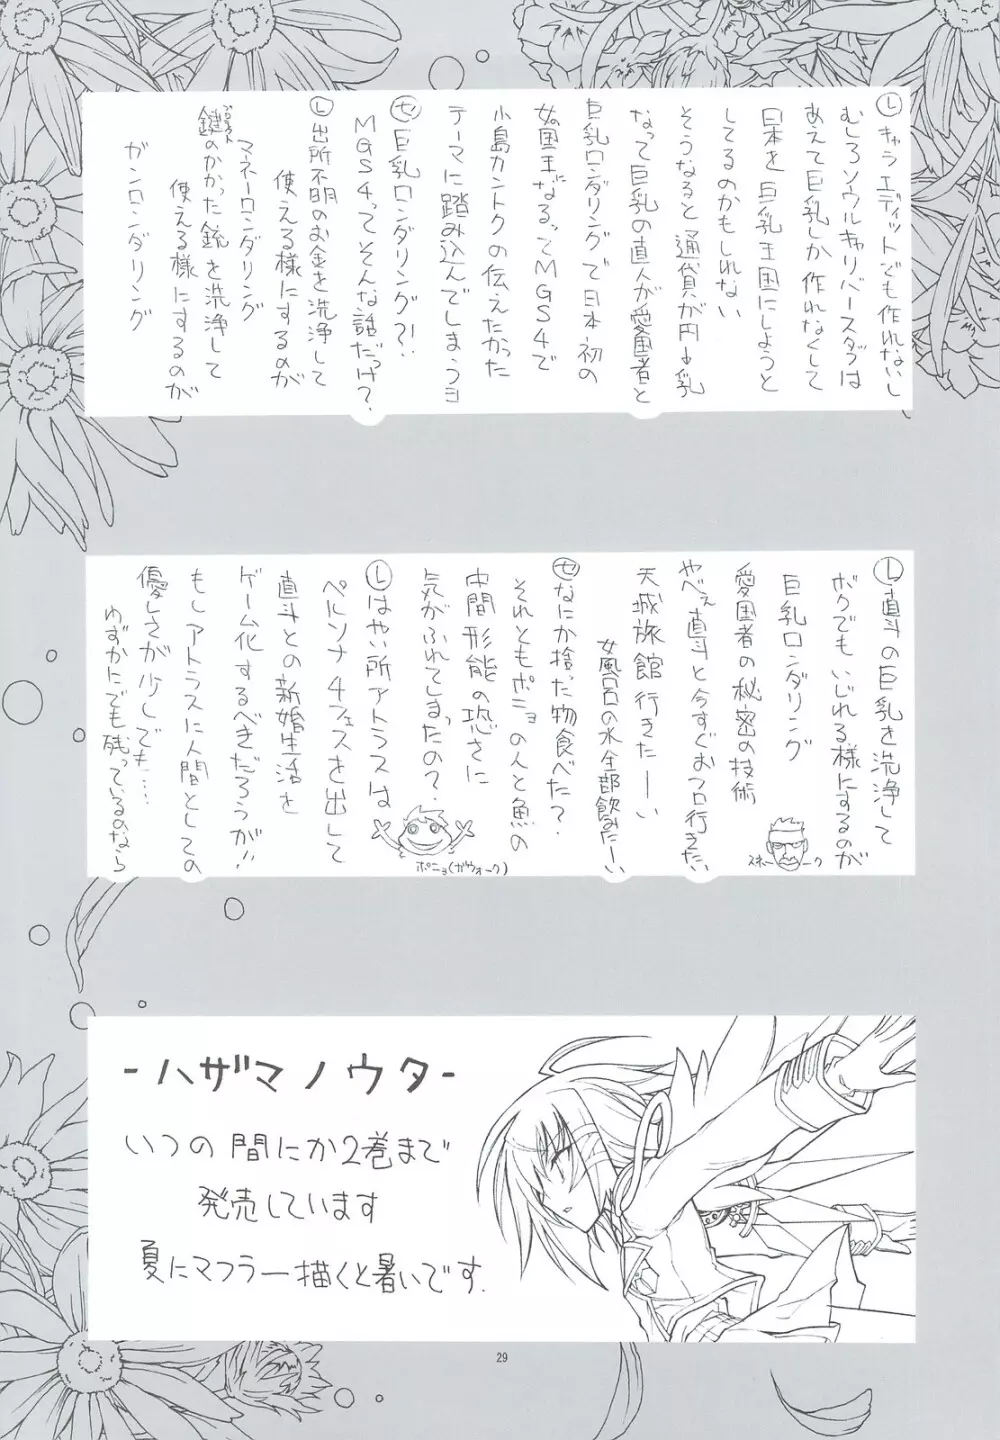 Ⓛキャラエディットでも作れないし
むしろソウルキャリバースタッフは
あえて巨乳しか作れなくして
日本を巨乳王国にしようと
してるのかもしれない
そうなると通貨が円→乳
なって巨乳の直人が愛国者と
巨乳ロンダリングで日本初の
女国王になるってMGS4で
小島カントクの伝えたかった
テーマに踏み込んでしまうヨ
㋝巨乳ロンダリング?!
MGS4ってそんな話だっけ?
Ⓛ出所不明のお金を洗浄して
使える様にするのが
マネーロンダリング
鍵のかかった銃を洗浄して
使える様にするのが
ガンロンダリング
Ⓛ直斗の巨乳を洗浄して
ボクでもいじれる様にするのが
巨乳ロンダリング
愛国者の秘密の技術
やべぇ直斗と今すぐおフロ行きたい
天城旅館行きたーい
女風呂の水全部飲みたーい
㋝なにか捨った物食べた?
それともポニョの人と魚の
中間形能の恐さに
気がふれてしまったの?
Ⓛはやい所アトラスは
ペルソナ4フェスを出して
直斗との新婚生活を
ゲーム化するべきだろうが!!
もしアトラスに人間としての
優しさが少しでも……
わずかにでも残っているのなら
スネーーク
ポニョ(ガウォーク)
-ハザマノウタ-
いつの間にか2巻まで
発売しています
夏にマフラー描くと暑いです.
29